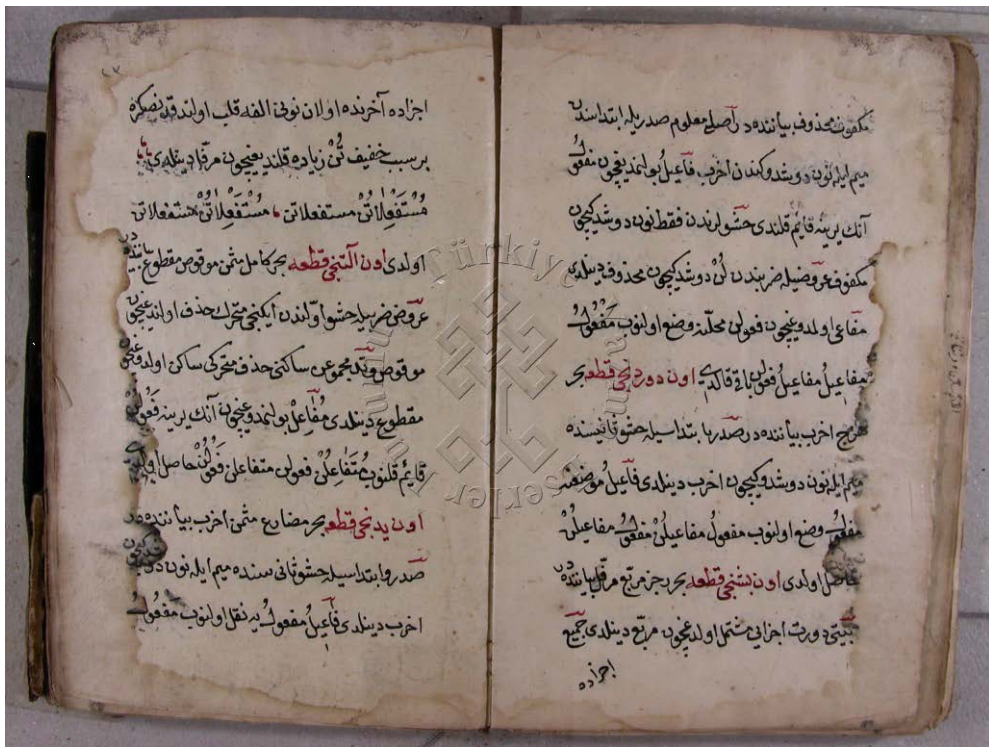 مكفوف محذوف بياننده در اصلى معلوم صدريله ابتداسندن
ميم ايله نون دوشدوكندن اخرب فاعيلُ بولنمديغيچون مفعولُ
آنك يرينه قايم قلندى حشولرندن فقط نون دوشديكيچون
مكفوف عروضيله ضربندن لُنْ دوشديكيچون محذوف دينلدى
مفاعى اولدوغيچون فعولن محلنه وضع اولنوب مَفْعُولُ
مفاعيلُ مفاعيلُ فعولن باقى قالدى اون دوردنجى قطعه بحر
هزج اخرب بياننده در صدر يا ابتداسيله حشو ثانيسنده
ميم ايله نون دوشدوكيچون اخرب دينلدى فاعيلُ موضعنه
مفعولُ وضع اولنوب مفعولُ مفاعيلُنْ مفعولُ مفاعيلُنْ
حاصل اولدى اون بشنجى قطعه بحر رجز مربع مرفل بياننده در
بيتى دورت اجزايى مشتمل اولدوغيچون مربع دينلدى جميع
اجزاده
اجزاده آخرنده اولان نونى الفه قلب اولندقدنصكره
بر سبب خفيف تُنْ زياده قلنديغيچون مرفل دينلدى
مُسْتَفْعِلَاتُنْ مستفعلاتن مُسْتَفْعِلَاتُنْ مستفعلاتن
اولدى اون التنجى قطعه بحر كامل مثمن موقوص مقطوع بياننده در
عروض ضربيله حشو اولندن ايكنجى متحرك حذف اولنديغيچون
موقوص وتد مجموعن ساكنى حذف متحركى ساكن اولدوغيچون
مقطوع دينلدى مُفَاعِلْ بولنمدوغيچون آنك يرينه فعولن
قايم قلنوب مُتَفَاعِلُنْ فعولن متفاعلن فَعُولُنْ حاصل اولدى
اون يدنجى قطعه بحر مضارع مثمن اخرب بياننده در
صدر و ابتداسيله حشو ثانى سنده ميم ايله نون دوشديكيچون
اخرب دينلدى فاعيلُ مفعولُ يه نقل اولنوب مفعولُ